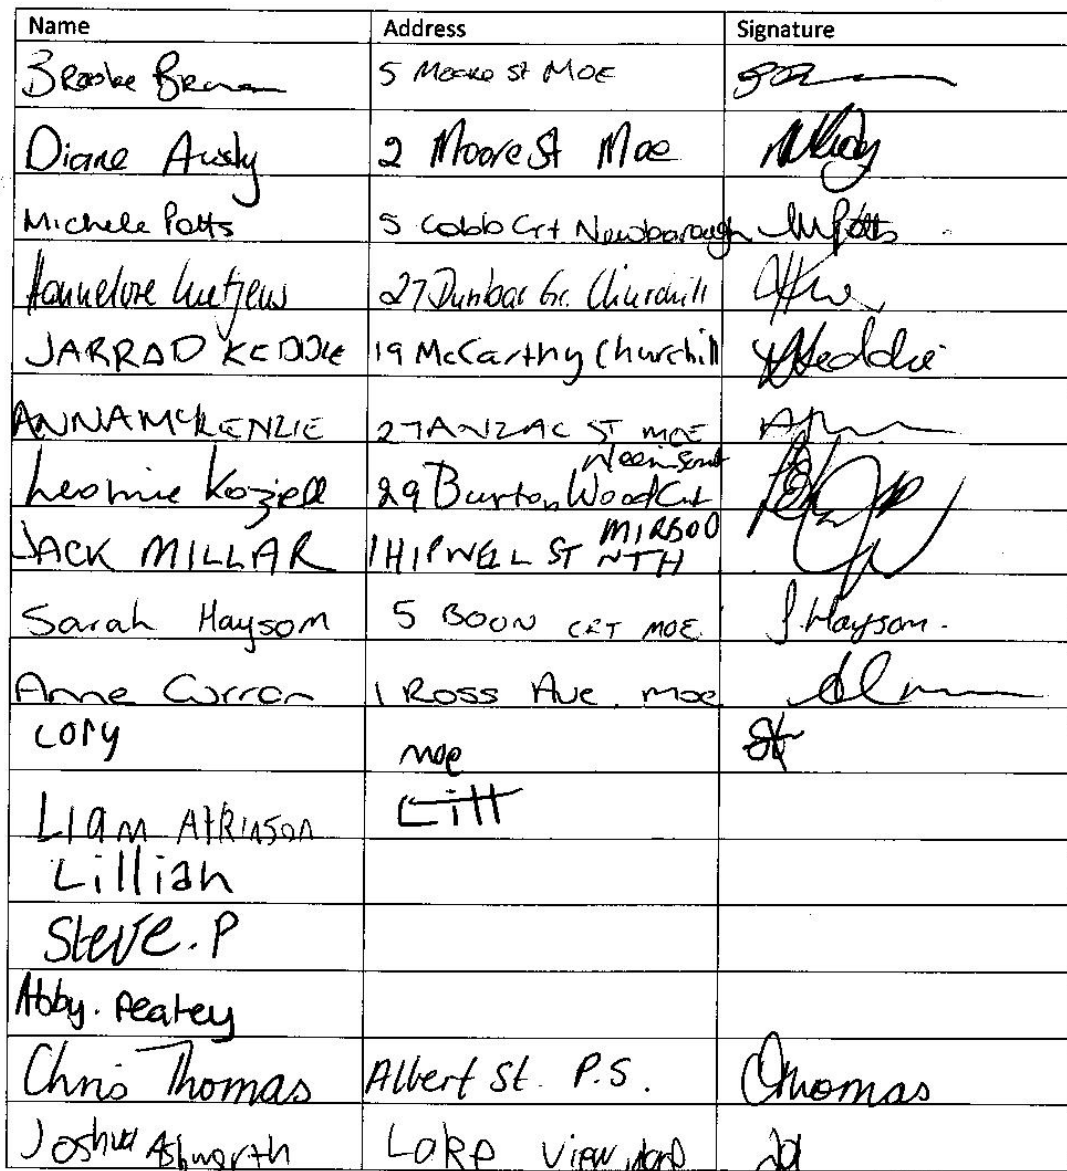 Name Address Signature
Brooke 5 Moore st MOE
Diane Ausly 2 Moore St Moe
Michele Potts 5 Cobb Crt Newborough MPotts
Hannelore Lutjens 27 Dunbar Gr. Churchill
JARRAD KEDDIE 19 McCarthy Churchill Keddie
ANNA MCKENZIE 27 ANZAC ST MOE
Leonnie Koziell 29 Burton Wood Crt
JACK MILLAR 1 HIPWELL ST MIRBOO NTH
Sarah Haysom 5 BOON CRT MOE S. Haysom.
Anne Curran 1 Ross Ave. moe
Cory moe
Liam Atkinson Lill
Lillian
Steve. P
Abby. Peatey
Chris Thomas Albert St. P.S. Thomas
Joshua Ashworth Lake View